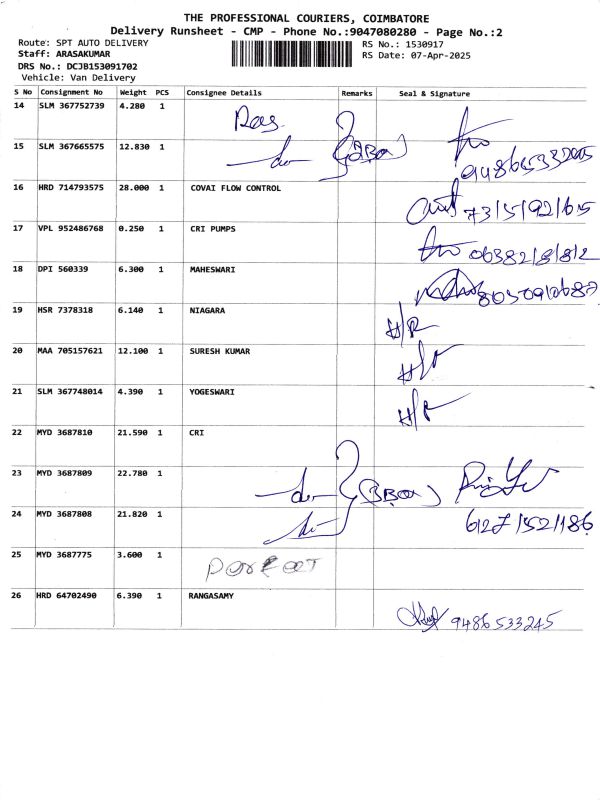 THE PROFESSIONAL COURIERS, COIMBATORE
Delivery Runsheet - CMP - Phone No.:9047080280 - Page No.:2
Route: SPT AUTO DELIVERY
RS No.: 1530917
Staff: ARASAKUMAR
RS Date: 07-Apr-2025
DRS No.: DCJB153091702
Vehicle: Van Delivery
S No Consignment No Weight PCS Consignee Details Remarks Seal & Signature
14 SLM 367752739 4.280 1
15 SLM 367665575 12.830 1
16 HRD 714793575 28.000 1 COVAI FLOW CONTROL
17 VPL 952486768 0.250 1 CRI PUMPS
18 DPI 560339 6.300 1 MAHESWARI
19 HSR 7378318 6.140 1 NIAGARA
H/R
20 MAA 705157621 12.100 1 SURESH KUMAR
H/R
21 SLM 367748014 4.390 1 YOGESWARI
H/R
22 MYD 3687810 21.590 1 CRI
23 MYD 3687809 22.780 1
24 MYD 3687808 21.820 1
25 MYD 3687775 3.600 1
26 HRD 64702490 6.390 1 RANGASAMY
9486533245